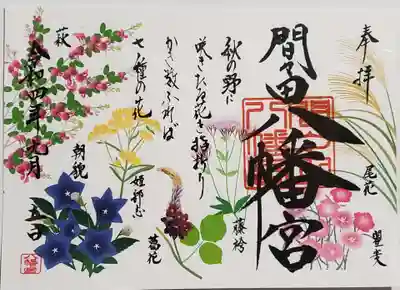 奉拝
尾花
瞿麦
間々田八幡宮
藤袴
秋の野に
咲きたる花を指折り
かき数ふれば
七種の花
葛花
女郎花
朝貌
萩
令和四年九月
五日